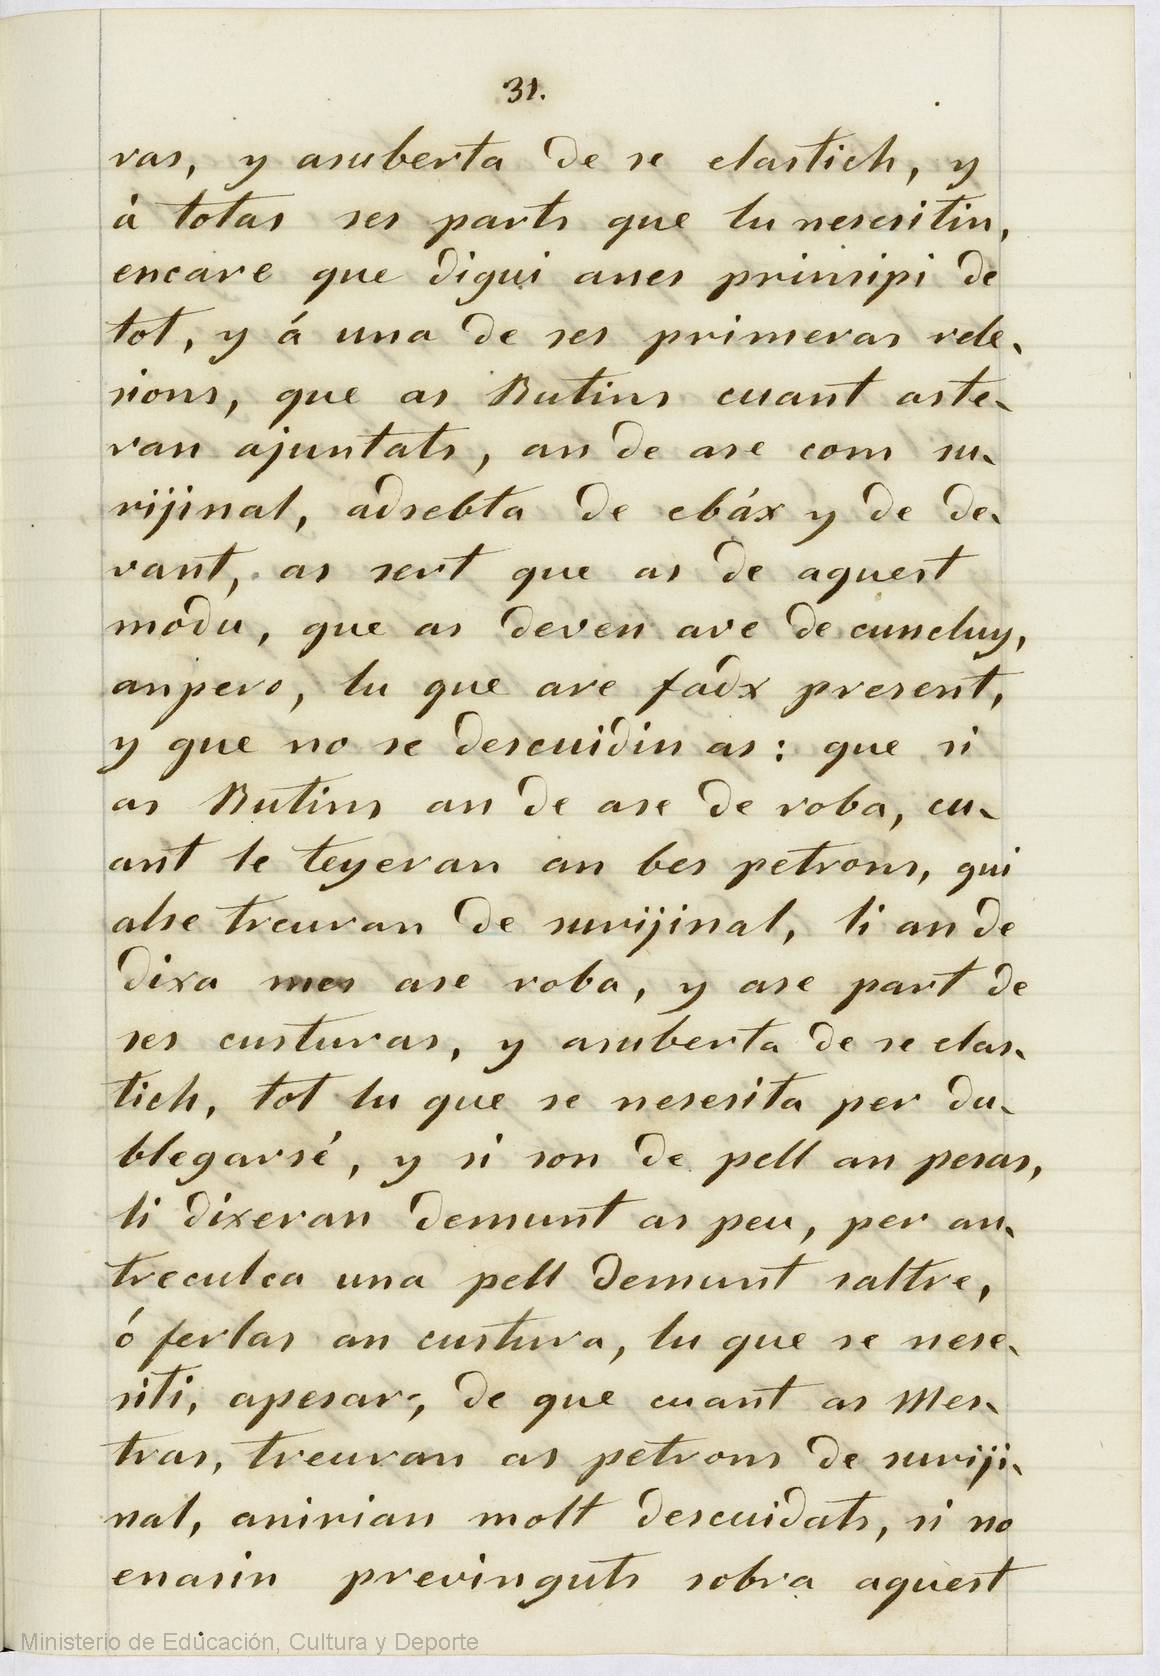 31.
ras, y asuberta de se elastich, y
à totas ses parts que lu nesesitin,
encare que digui anes prinsipi de
tot, y á una de ses primeras rele-
sions, que as Butins cuant aste-
van ajuntats, an de ase com su-
rijinal, adsebta de ebáx y de de-
vant, as sert que as de aquest
modu, que as deven ave de cuncluy,
anpero, lu que are fadx present,
y que no se descuidin as: que si
as Butins an de ase de roba, cu-
ant le teyeran an bes petrons, qui
alse treuran de surijinal, li an de
dixa mes ase roba, y ase part de
ses custuras, y asuberta de se elas-
tich, tot lu que se nesesita per du-
blegarsé, y si son de pell an pesas,
li dixeran demunt as peu, per an-
treculca una pell demunt saltre,
ó ferlas an custura, lu que se nese-
siti, apesar, de que cuant as Mes-
tras, treuran as petrons de suriji-
nal, anirian molt descuidats, si no
enasin previnguts sobra aquest
Ministerio de Educación, Cultura y Deporte